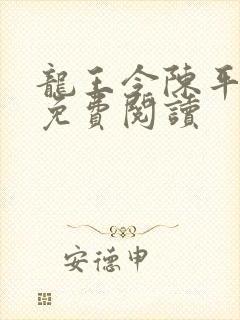 龍王令陳平
免費閱讀
安德申